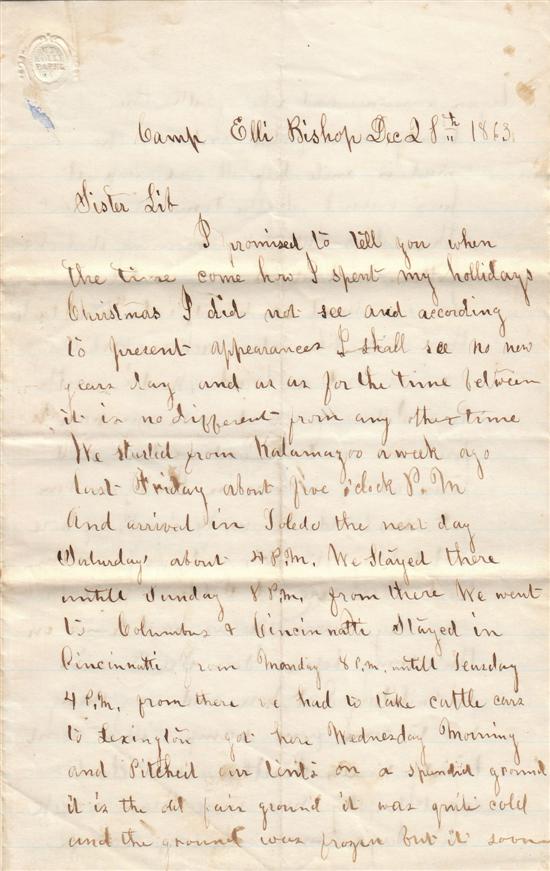 Camp Elli Bishop Dec 28th 1863.
Sister Lib
I promised to tell you when
the time come how I spent my hollidays
Christmas I did not see and according
to present appearances I shall see no new
years day and as as for the time between
it is no different from any other time
We started from Kalamazoo a week ago
last Friday about five o'clock P.M
And arrived in Toledo the next day
Saturday about 4 P.M. We Stayed there
untill Sunday 8 P.M. from there We went
to Columbus & Cincinnatti Stayed in
Cincinnatti from Monday 8 P.M. untill Teusday
4 P.M. from there we had to take cattle cars
to Lexington got here Wednesday Morning
and Pitched our tents on a splendid ground
it is the old fair ground it was quite cold
and the ground was frozen but it soon